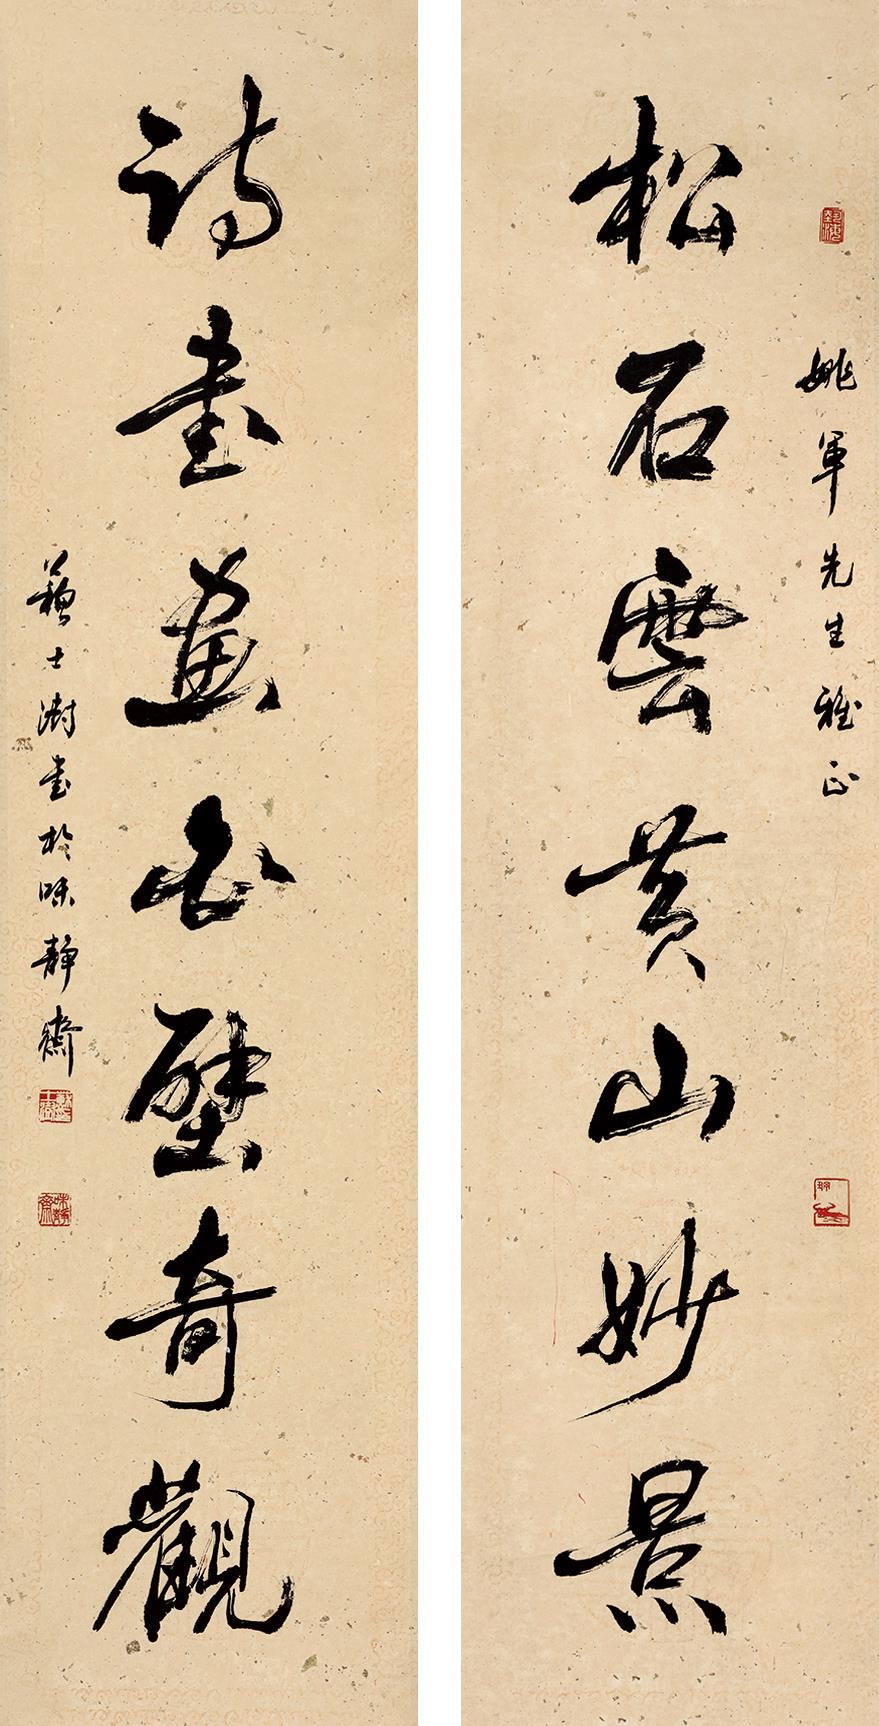 姚軍先生雅正
松石雲黄山妙景
詩書畫壁奇觀
蘇士澍書於味靜齋
味靜齋